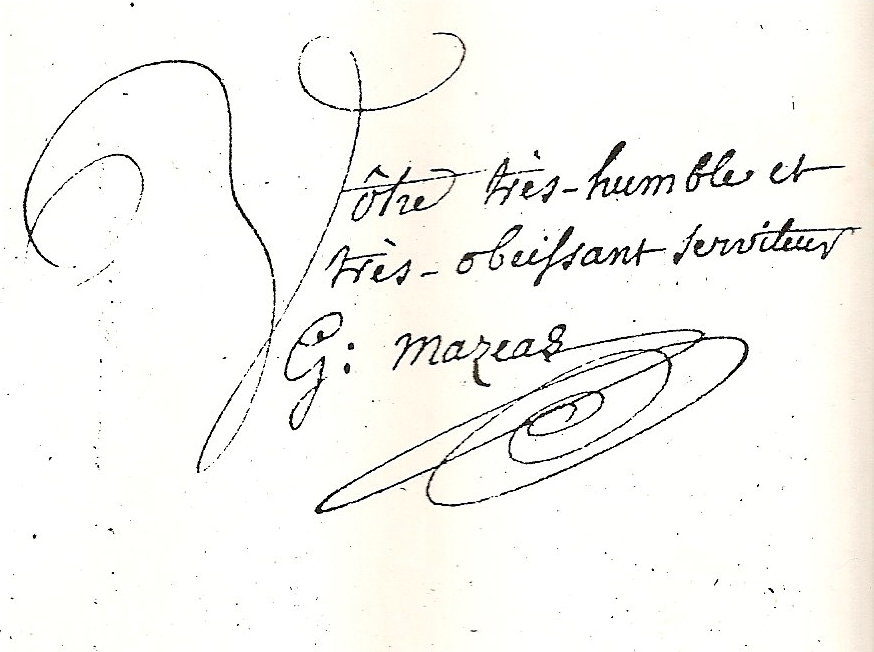 Vôtre très-humble et
très-obeissant serviteur
G: mazeas